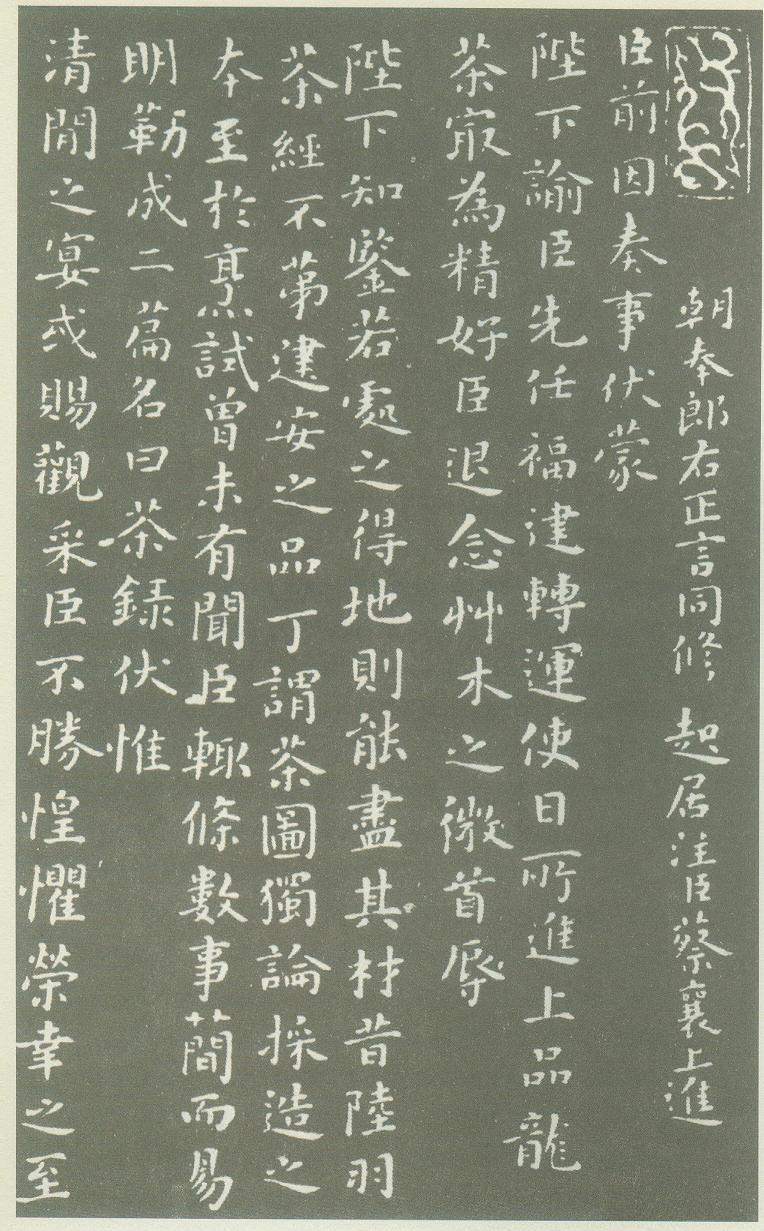 朝奉郎右正言同修起居注臣蔡襄上進
臣前因奏事伏蒙
陛下諭臣先任福建轉運使日所進上品龍
茶㝡為精好臣退念艸木之微首辱
陛下知鑒若處之得地則能盡其材昔陸羽
茶經不苐建安之品丁謂茶圖獨論採造之
本至於烹試曾未有聞臣輒條數事簡而易
明勒成二篇名曰茶錄伏惟
清閒之宴或賜觀采臣不勝惶懼榮幸之至